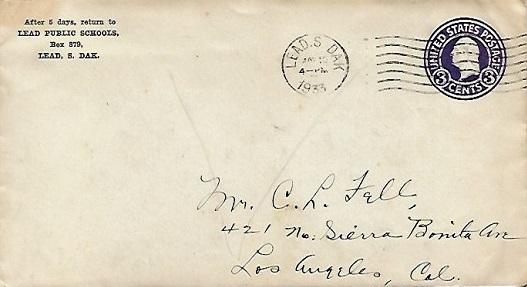 After 5 days, return to
LEAD PUBLIC SCHOOLS,
Box 879,
LEAD, S. DAK.
LEAD, S. DAK
4-PM
1933
UNITED STATES POSTAGE
3 CENTS 3
Mr. C. L. Fell,
421 No: Sierra Bonita Ave
Los Angeles, Cal.